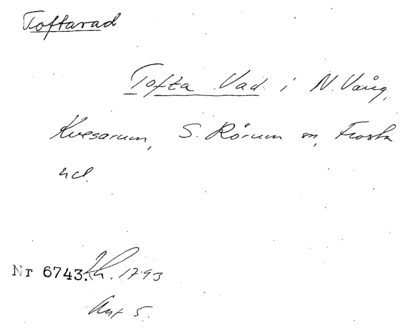 Toftavad
Tofta Vad. i N. Vång,
Kvesarum, S. Rörum sn, Frosta
hd.
Nr 6743. Lh. 1793
Akt 5.